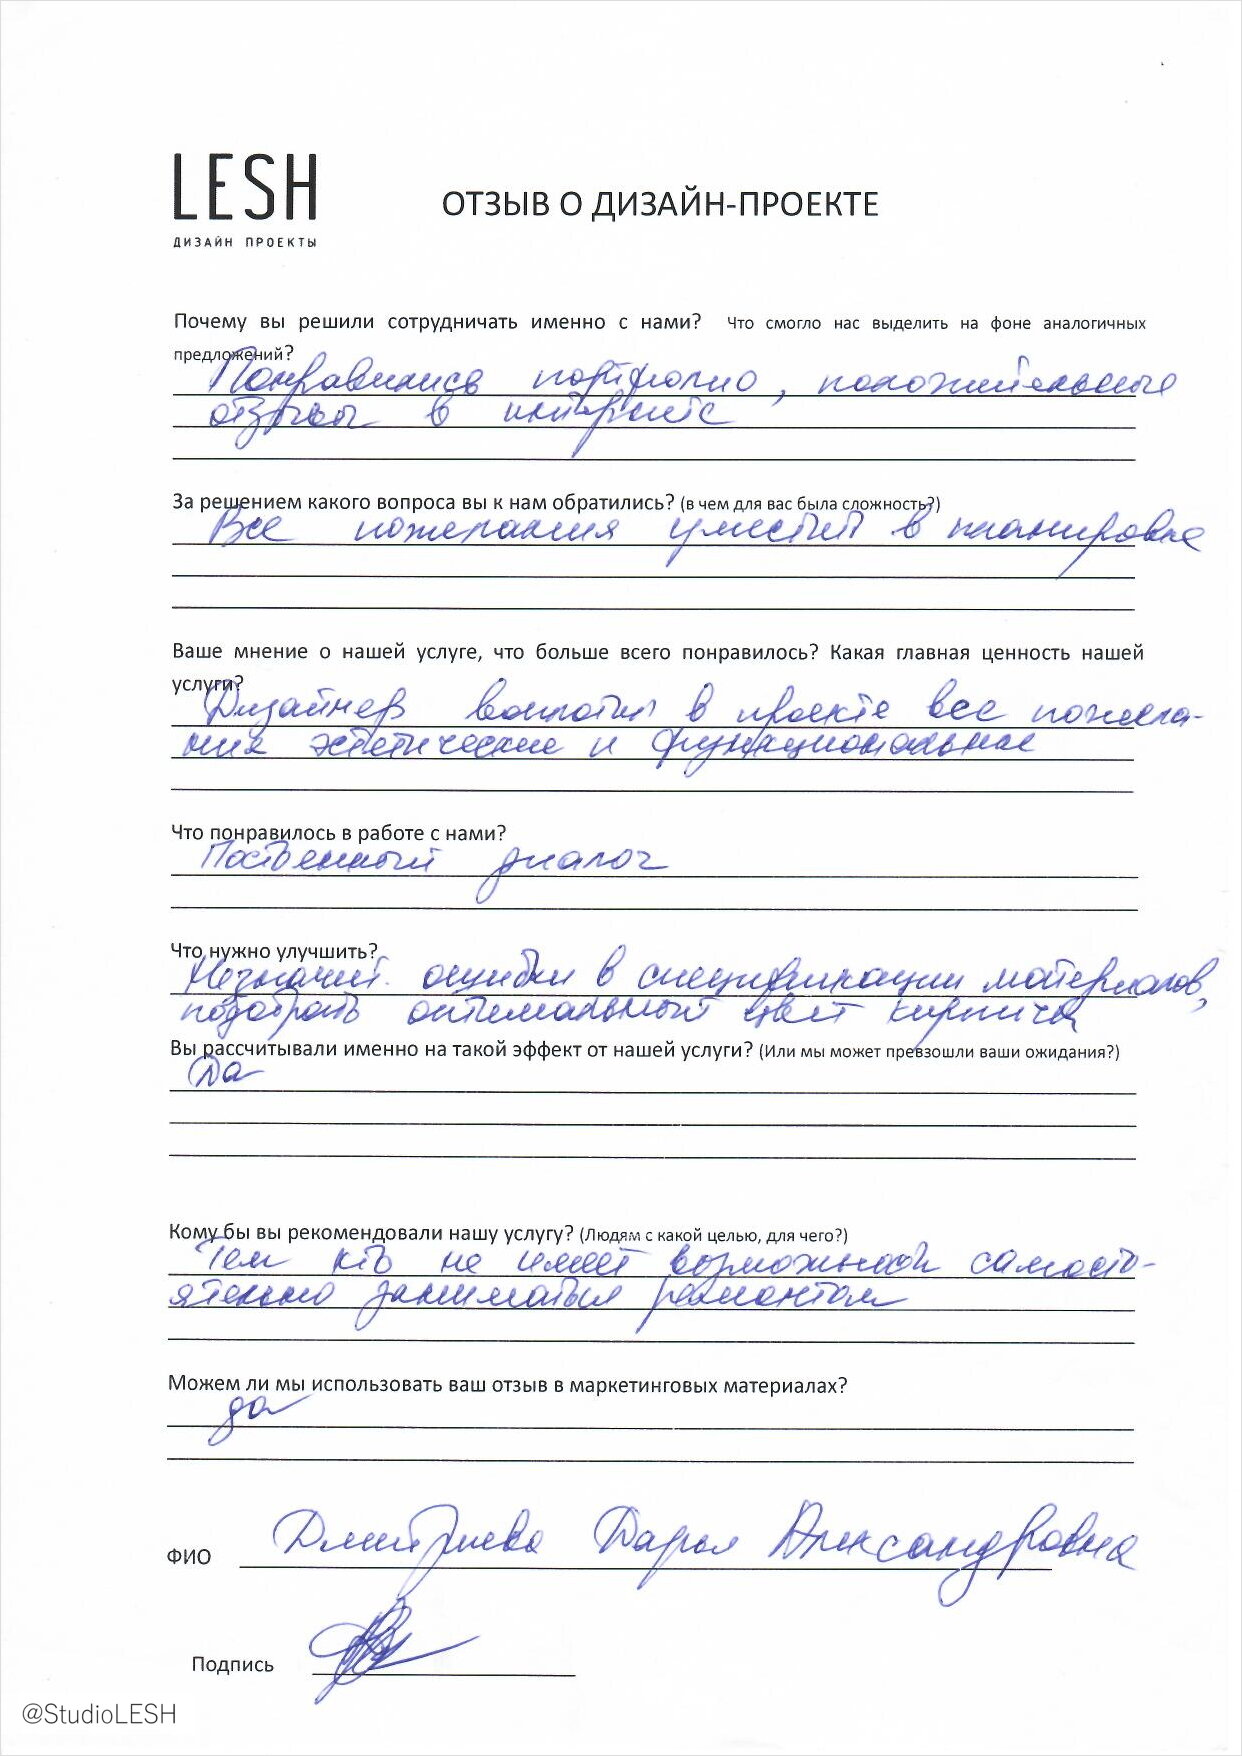 LESH
ДИЗАЙН ПРОЕКТЫ
ОТЗЫВ О ДИЗАЙН-ПРОЕКТЕ
Почему вы решили сотрудничать именно с нами? Что смогло нас выделить на фоне аналогичных
предложений?
Понравились портфолио, положительные
отзывы в интернете
За решением какого вопроса вы к нам обратились? (в чем для вас была сложность?)
Все пожелания уместить в планировке
Ваше мнение о нашей услуге, что больше всего понравилось? Какая главная ценность нашей
услуги?
Дизайнер воплотил в проекте все пожела-
ния эстетические и функциональные
Что понравилось в работе с нами?
диалог
Что нужно улучшить?
Незначит. ошибки в спецификации материалов,
подобрать оптимальный цвет кирпича
Вы рассчитывали именно на такой эффект от нашей услуги? (Или мы может превзошли ваши ожидания?)
Да
Кому бы вы рекомендовали нашу услугу? (Людям с какой целью, для чего?)
Тем кто не имеет возможности самосто-
ятельно заниматься ремонтом
Можем ли мы использовать ваш отзыв в маркетинговых материалах?
да
ФИО Дмитриева Дарья Александровна
Подпись
@StudioLESH